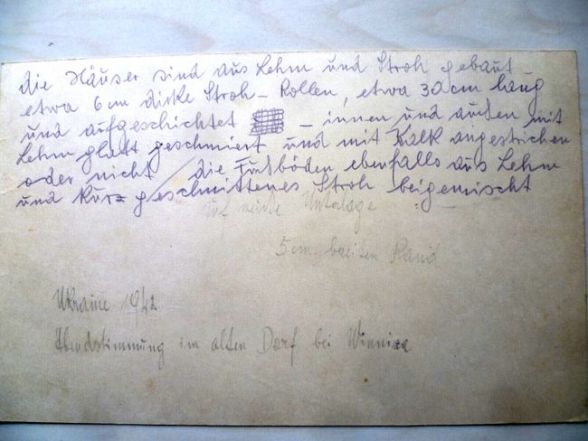 die Häuser sind aus Lehm und Stroh gebaut –
etwa 6 cm dicke Stroh-Rollen, etwa 30 cm lang
und aufgeschichtet – innen und außen mit
Lehm glatt geschmiert und mit Kalk angestrichen
oder nicht / die Fußböden ebenfalls aus Lehm
und kurz geschnittenes Stroh beigemischt
auf Unterlage
5 cm breiten Rand
Ukraine 1942
Abendstimmung im alten Dorf bei Winniza